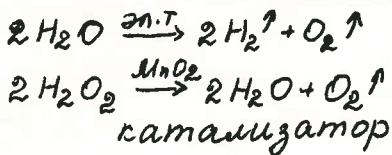 2H₂O эл.т → 2H₂↑ + O₂↑
2H₂O₂ MnO₂ → 2H₂O + O₂↑
катализатор